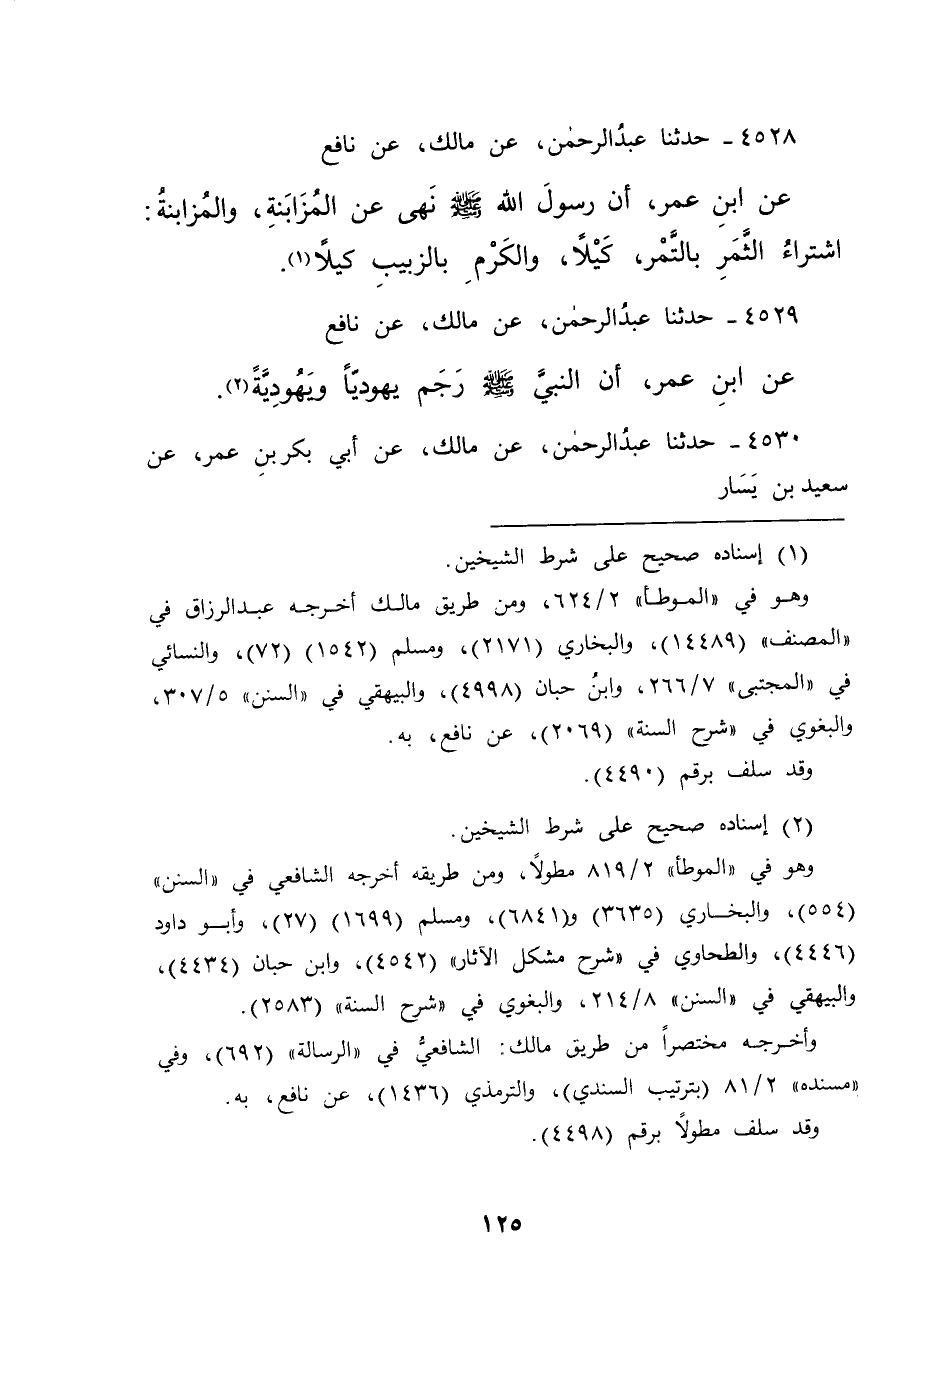 ٤٥٢٨ ـ حدثنا عبدُالرحمٰن، عن مالك، عن نافع
عن ابنِ عمر، أن رسولَ الله ﷺ نَهى عن المُزَابَنةِ، والمُزابنةُ:
اشتراءُ الثَّمَرِ بالتَّمْر، كَيْلًا، والكَرْمِ بالزبيبِ كيلًا(١).
٤٥٢٩ ـ حدثنا عبدُالرحمٰن، عن مالك، عن نافع
عن ابنِ عمر، أن النبيَّ ﷺ رَجَم يهوديّاً ويَهُودِيَّةً(٢).
٤٥٣٠ ـ حدثنا عبدُالرحمٰن، عن مالك، عن أبي بكر بنِ عمر، عن
سعيد بن يَسَار
(١) إسناده صحيح على شرط الشيخين.
وهو في «الموطأ» ٦٢٤/٢، ومن طريق مالك أخرجه عبدالرزاق في
«المصنف» (١٤٤٨٩)، والبخاري (٢١٧١)، ومسلم (١٥٤٢) (٧٢)، والنسائي
في «المجتبى» ٢٦٦/٧، وابنُ حبان (٤٩٩٨)، والبيهقي في «السنن» ٣٠٧/٥،
والبغوي في «شرح السنة» (٢٠٦٩)، عن نافع، به.
وقد سلف برقم (٤٤٩٠).
(٢) إسناده صحيح على شرط الشيخين.
وهو في «الموطأ» ٨١٩/٢ مطولًا، ومن طريقه أخرجه الشافعي في «السنن»
(٥٥٤)، والبخاري (٣٦٣٥) و(٦٨٤١)، ومسلم (١٦٩٩) (٢٧)، وأبو داود
(٤٤٤٦)، والطحاوي في «شرح مشكل الآثار» (٤٥٤٢)، وابن حبان (٤٤٣٤)،
والبيهقي في «السنن» ٢١٤/٨، والبغوي في «شرح السنة» (٢٥٨٣).
وأخرجه مختصراً من طريق مالك: الشافعيُّ في «الرسالة» (٦٩٢)، وفي
«مسنده» ٨١/٢ (بترتيب السندي)، والترمذي (١٤٣٦)، عن نافع، به.
وقد سلف مطولًا برقم (٤٤٩٨).
١٢٥